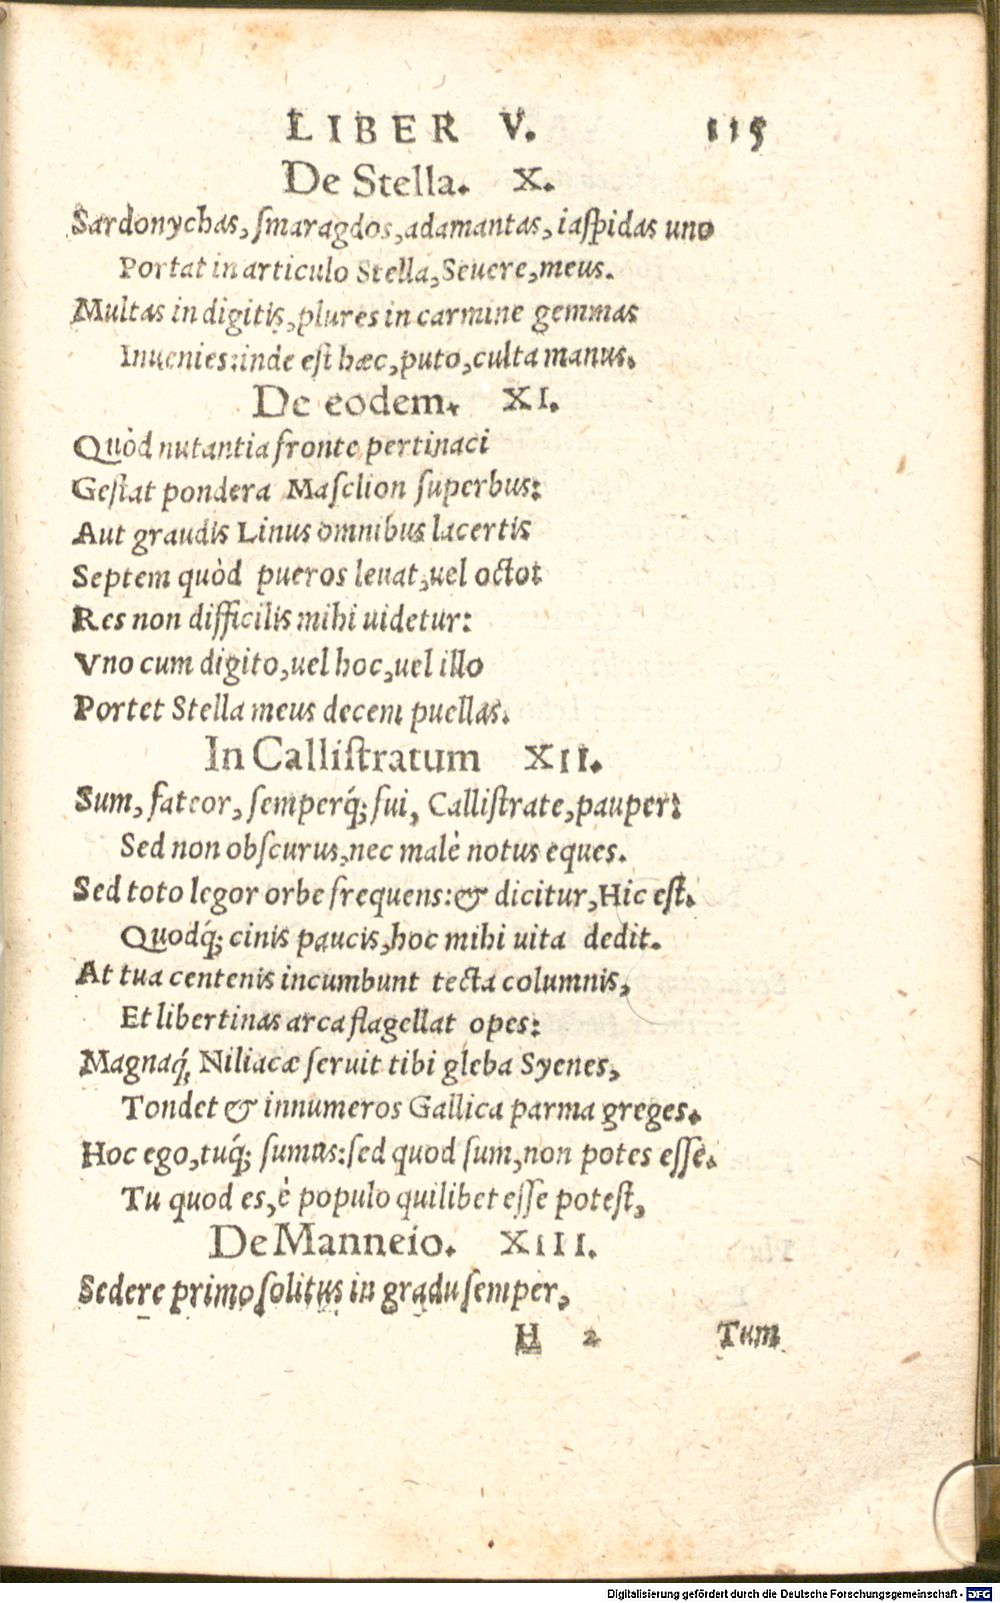 LIBER V. 115
De Stella. X.
Sardonychas, ſmaragdos, adamantas, iaſpidas uno
Portat in articulo Stella, Seuere, meus.
Multas in digitis, plures in carmine gemmas
Inuenies: inde eſt hæc, puto, culta manus.
De eodem. XI.
Quòd nutantia fronte pertinaci
Geſtat pondera Maſclion ſuperbus:
Aut graudis Linus omnibus lacertis
Septem quòd pueros leuat, uel octo:
Res non difficilis mihi uidetur:
Vno cum digito, uel hoc, uel illo
Portet Stella meus decem puellas.
In Calliſtratum XII.
Sum, fateor, ſemperq́; fui, Calliſtrate, pauper:
Sed non obſcurus, nec malè notus eques.
Sed toto legor orbe frequens: & dicitur, Hic eſt.
Quodq́; cinis paucis, hoc mihi uita dedit.
At tua centenis incumbunt tecta columnis,
Et libertinas arca flagellat opes:
Magnaq́; Niliacæ ſeruit tibi gleba Syenes,
Tondet & innumeros Gallica parma greges.
Hoc ego, tuq́; ſumus: ſed quod ſum, non potes eſſe.
Tu quod es, è populo quilibet eſſe poteſt,
De Manneio. XIII.
Sedere primo ſolitus in gradu ſemper,
H 2 Tum
Digitalisierung gefördert durch die Deutsche Forschungsgemeinschaft - DFG